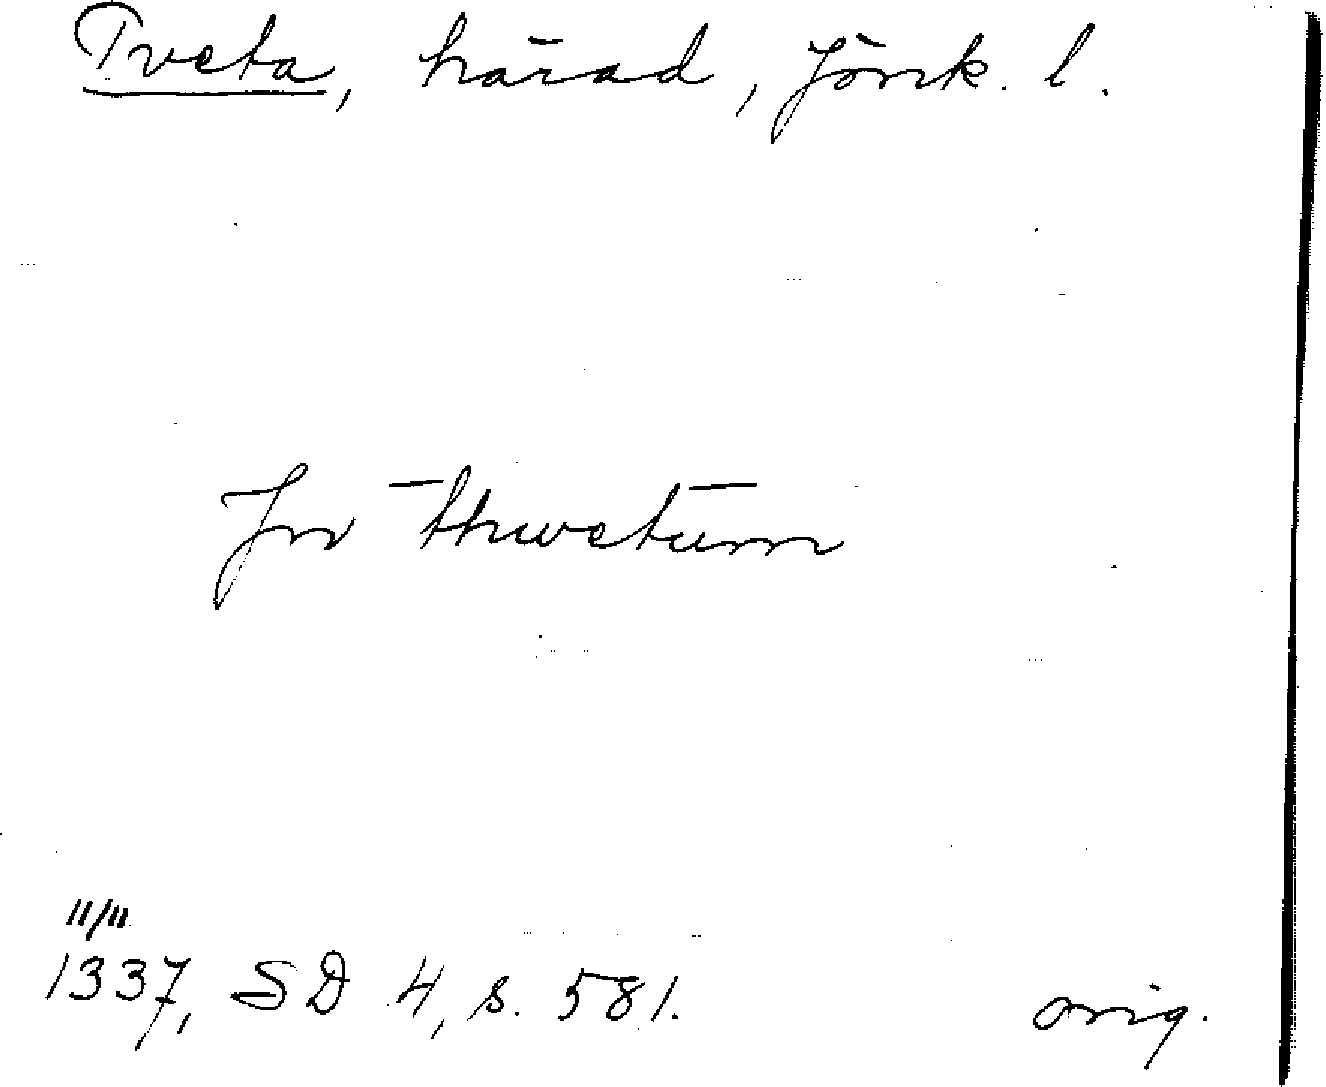 Tveta, härad, Jönk. l.
Jn thwetum
11/11
1337, SD 4, s. 581.
orig.